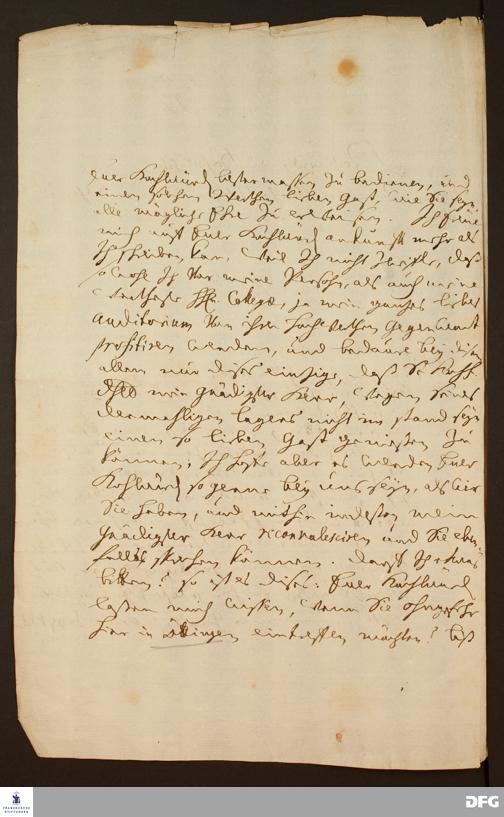 Euer Hochwürd bestermassen zu bedienen, und
einen solchen werthen lieben Gast, wie Sie seyn
alle mögliche Ehre zu erweisen. Ich freue
mich auf Euer Hochwürd ankunfft mehr als
Ich schreiben kan, weil Ich nicht zweifle, daß
sowohl Ich vor meine Person, als auch meine
wertheste HH. Collegæ, ja mein ganzes liebes
Auditorium von ihrer Gegenwart
profitiren werden, und bedaure bey disem
allem nur dises einzige, daß Se Hochf.
Dhlt mein gnädigster Herr, wegen Seines
dermahligen lagers nicht im stand seyn
einen so lieben Gast geniessen zu
können, Ich hoffe aber es werden Euer
Hochwürd so gerne bey uns seyn, als wir
Sie haben, und mithin indessen mein
Gnädigster Herr reconvalesciren und Sie eben
falls sprechen können. Darff Ich etwas
bitten? so ist es dises. Euer Hochwürd
lassen mich wissen, wann Sie ohngefehr
hier in Öttingen eintreffen möchten? biß
FRANCKESCHE
STIFTUNGEN
DFG